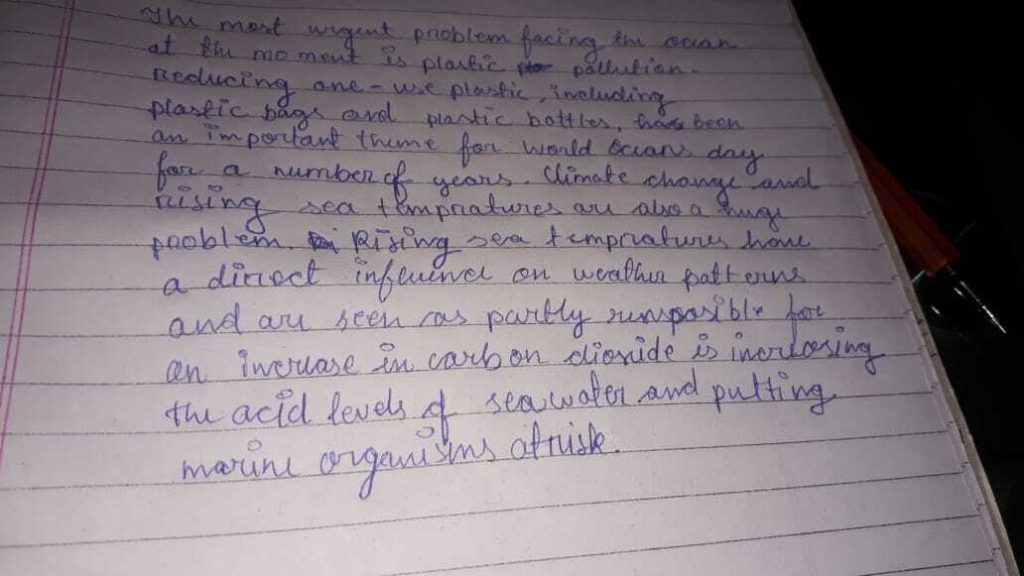 The most urgent problem facing the ocean
at the moment is plastic pollution.
reducing one-use plastic, including
plastic bags and plastic bottles, has been
an important theme for world oceans day
for a number of years. Climate change and
rising sea tempratures are also a huge
problem. Rising sea tempratures have
a direct influence on weather patterns
and are seen as partly responsible for
an increase in carbon dioxide is increasing
the acid levels of seawater and putting
marine organisms at risk.